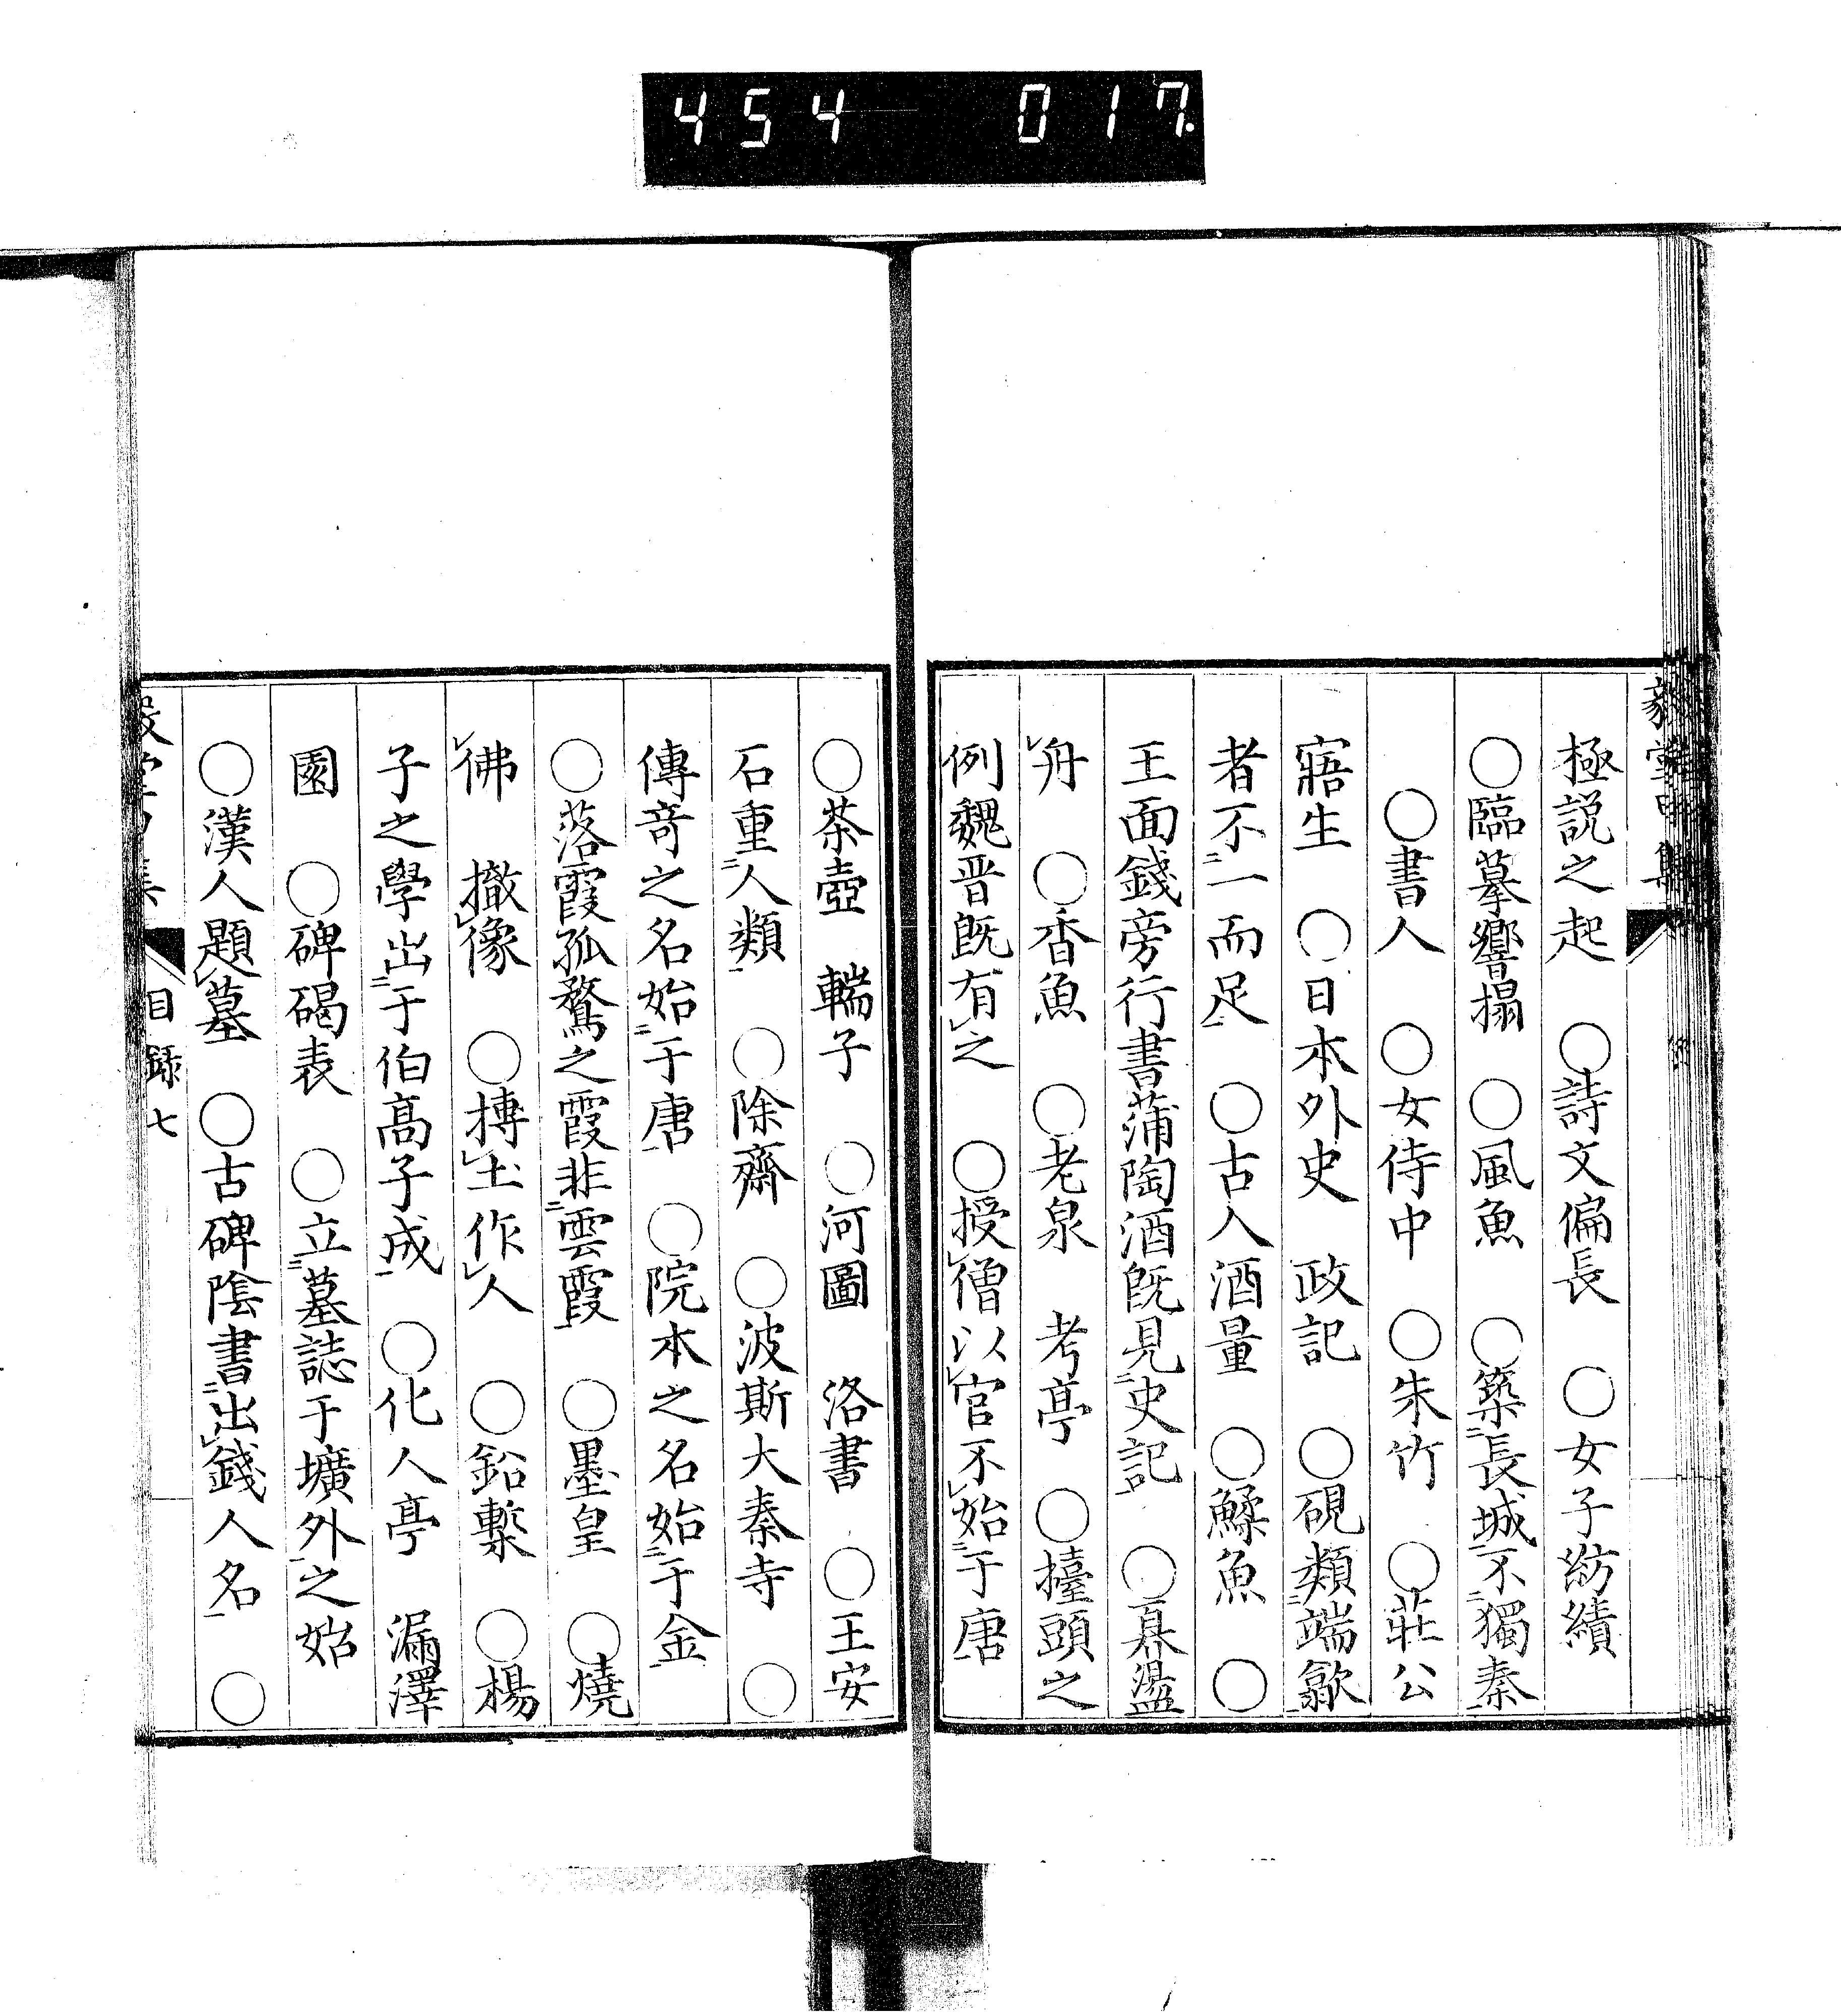 454 017
極説之起 ○詩文偏長 ○女子紡績
○臨摹響搨 ○風魚 ○築長城不獨秦
○書人 ○女侍中 ○朱竹 ○莊公
寤生 ○日本外史 政記 ○硯類端歙
者不一而足 ○古人酒量 ○鰇魚 ○
王面錢旁行書蒲陶酒既見史記
舟 ○香魚 ○老泉 考亭 ○擡頭之
例魏晋既有之 ○授僧以官不始于唐
○茶壺 輲子 ○河圖 洛書 ○王安
石重人類 ○除齋 ○波斯大秦寺 ○
傳奇之名始于唐 ○院本之名始于金
○落霞孤鶩之霞非雲霞 ○墨皇 ○燒
佛 撤像 ○摶土作人 ○鉛槧 ○楊
子之學出于伯高子成 ○化人亭 漏澤
園 ○碑碣表 ○立墓誌于壙外之始
○漢人題墓 ○古碑陰書出錢人名 ○
目録 七